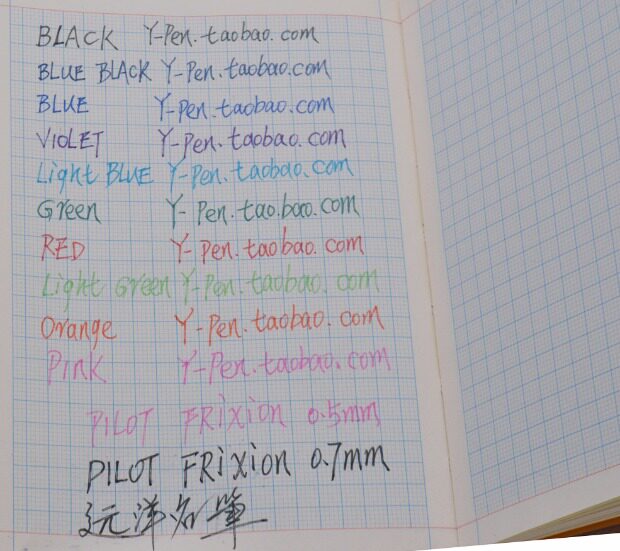 BLACK Y-Pen.taobao.com
BLUE BLACK Y-Pen.taobao.com
BLUE Y-Pen.taobao.com
VIOLET Y-Pen.taobao.com
Light BLUE Y-Pen.taobao.com
Green Y-Pen.taobao.com
RED Y-Pen.taobao.com
Light Green Y-Pen.taobao.com
Orange Y-Pen.taobao.com
Pink Y-Pen.taobao.com
PILOT FRiXion 0.5mm
PILOT FRiXion 0.7mm
远洋名筆